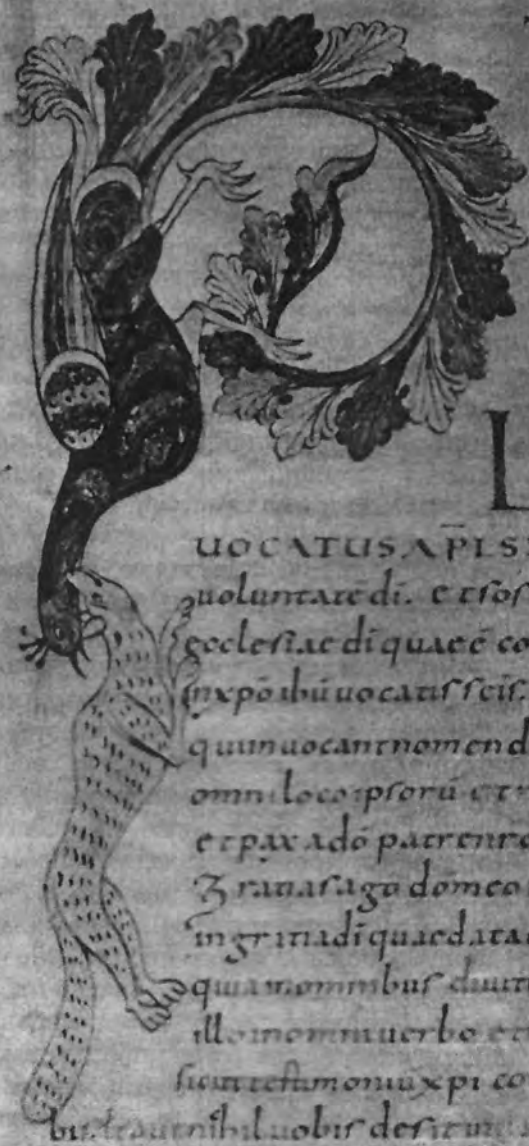 L
UOCATUS APLS
uoluntatē dī. et sos
ecclesiae dī quae ē co
inxp̄o ihū uocatis scīs
qui inuocant nomen d
omni loco ipsorū et n
et pax a dō patre nrō
Gratias ago dō meo
in gratia dī quae data
quia in omnibus diuit
illo in omni uerbo et
sicut testimoniū xpī co
nihil uobis desit in